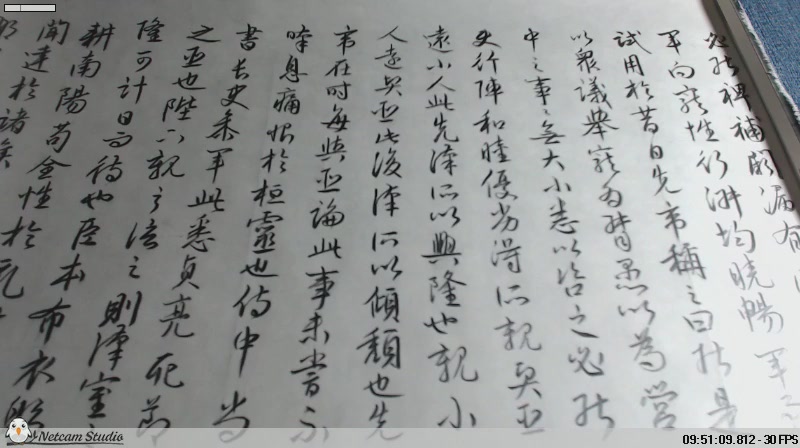 必能裨補闕漏有
軍向寵性行淑均曉暢軍
試用於昔日先帝稱之曰能是
以眾議舉寵為督愚以為營
中之事事無大小悉以咨之必能
使行陣和睦優劣得所親賢臣
遠小人此先漢所以興隆也親小
人遠賢臣此後漢所以傾頹也先
帝在時每與臣論此事未嘗不
嘆息痛恨於桓靈也侍中尚
書長史参軍此悉貞亮死節
之臣也陛下親之信之則漢室之
隆可計日而待也臣本布衣躬
耕南陽苟全性於乱
聞達於諸侯
Netcam Studio
09:51:09.812 - 30 FPS